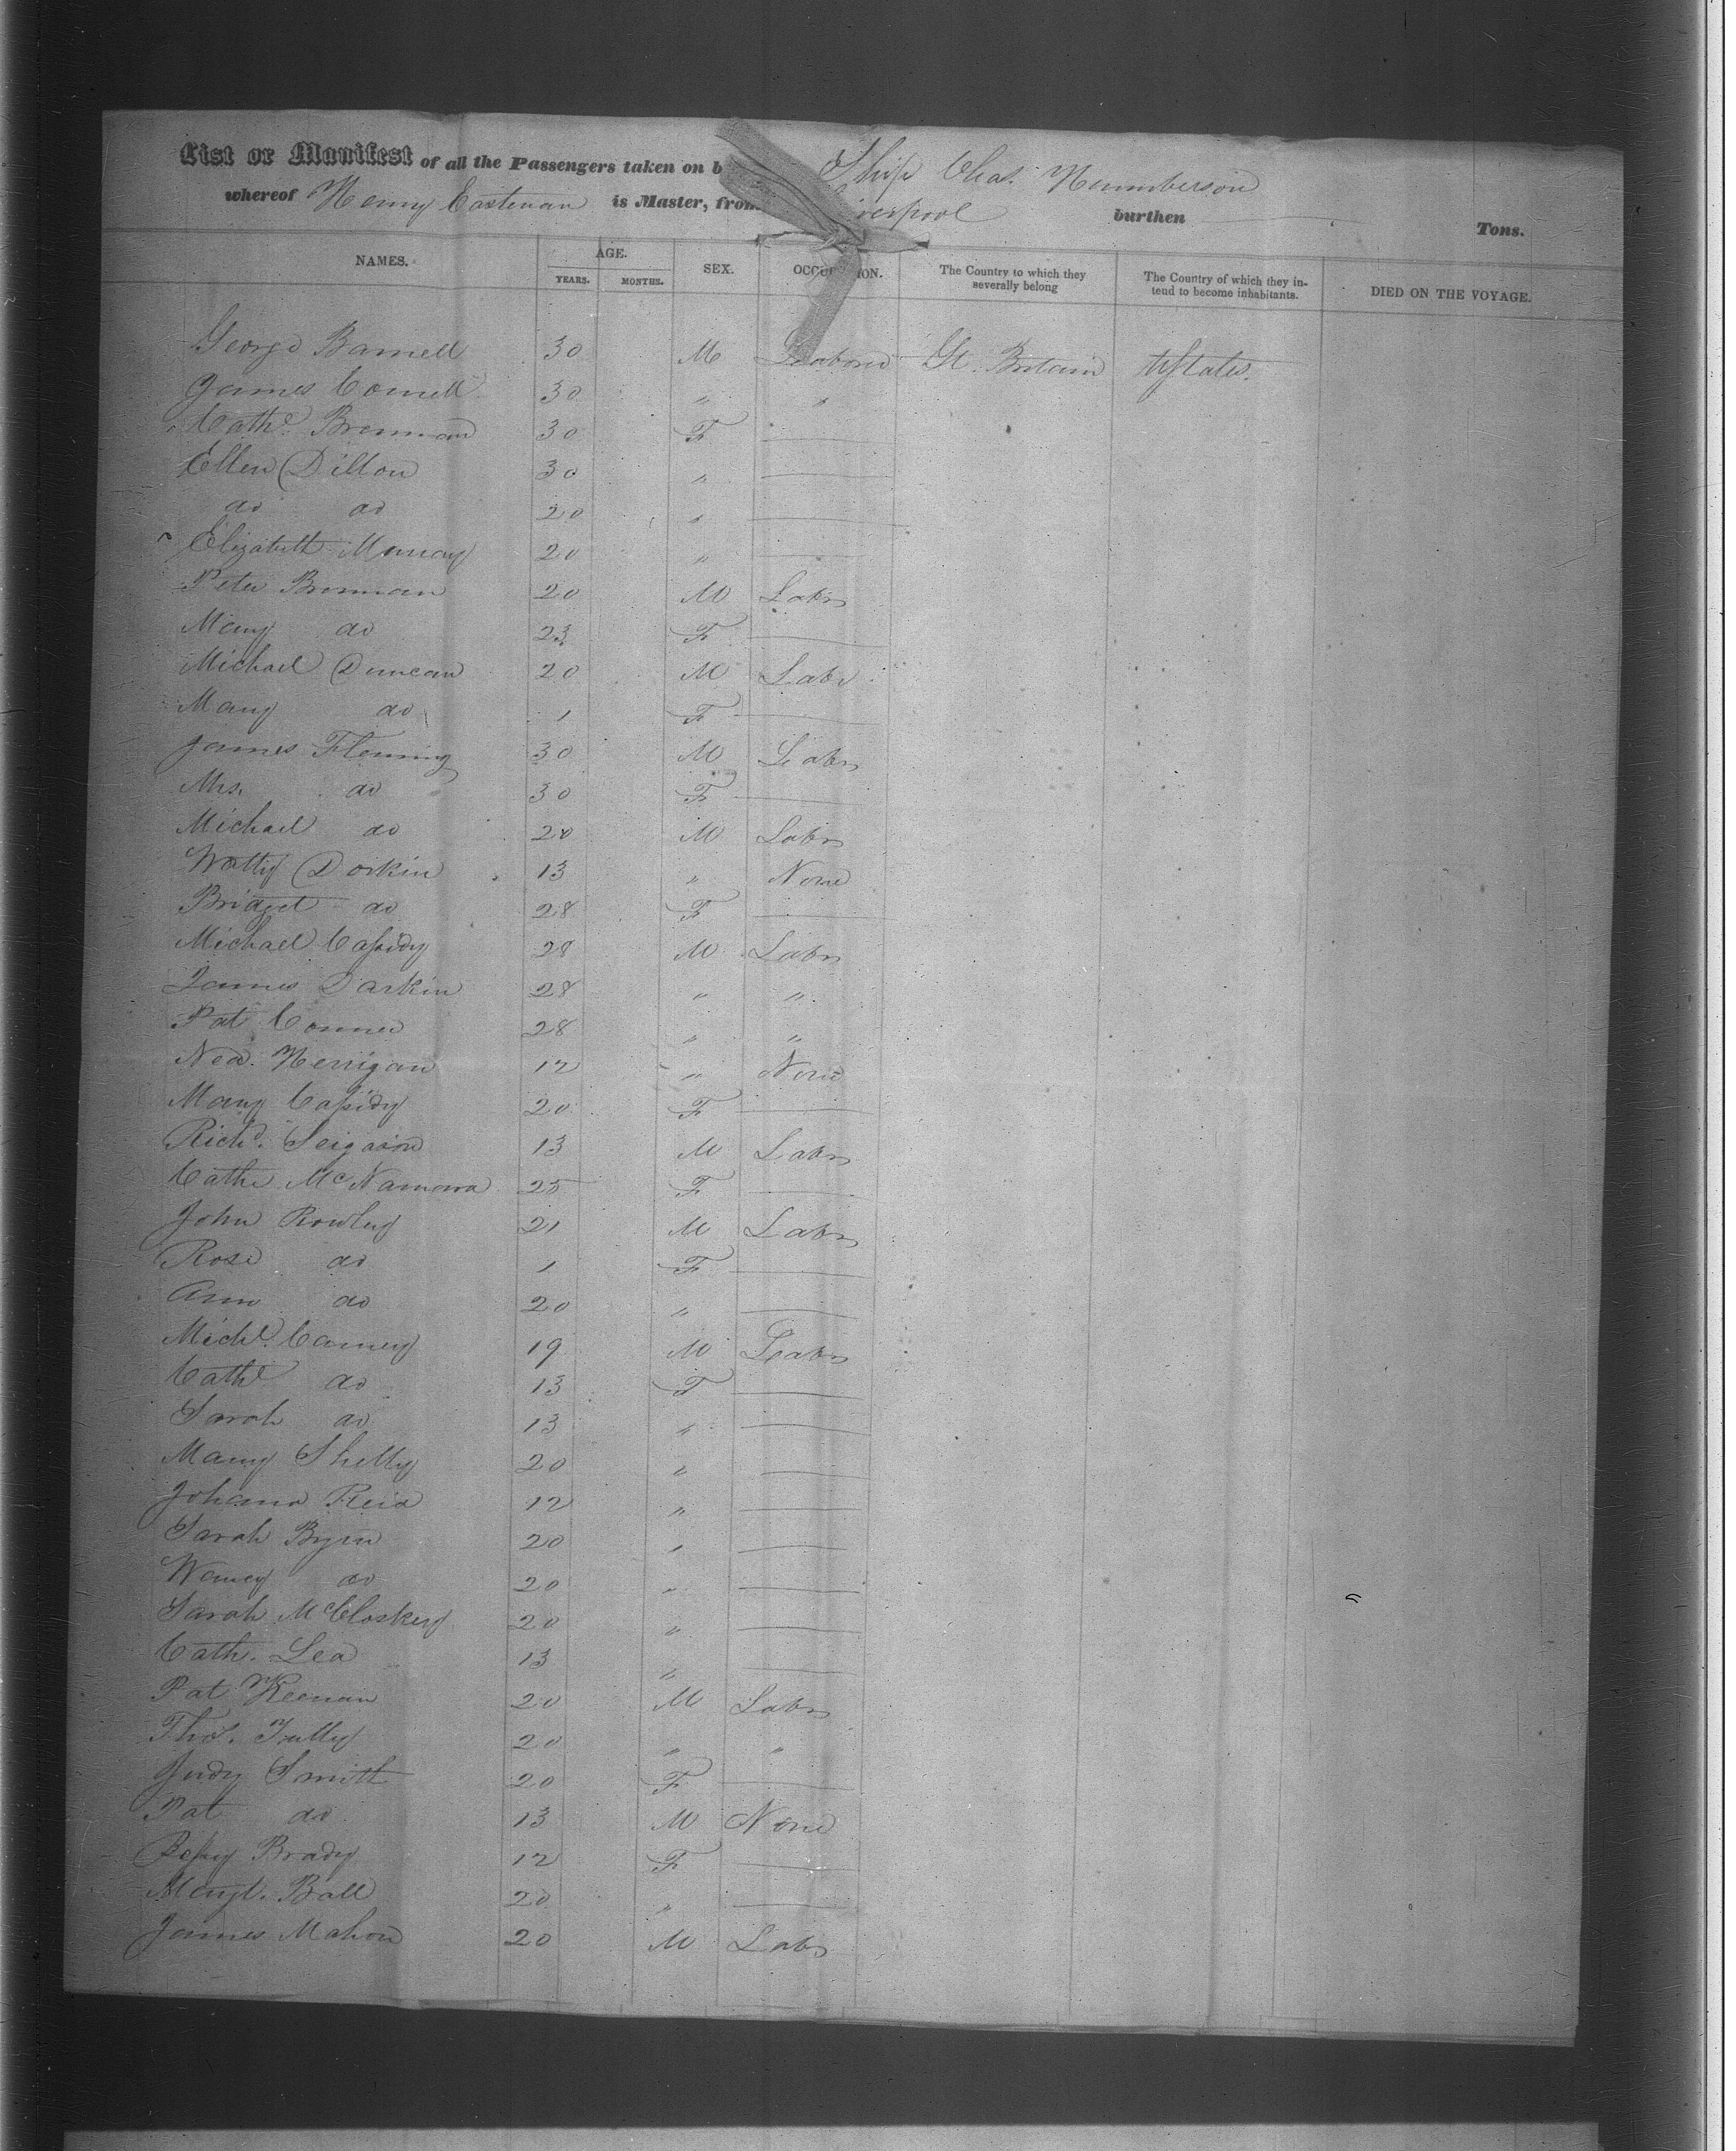 List or Manifest of all the Passengers taken on b Ship Chas. Humberson
whereof Henry Eastman is Master, from erpool burthen Tons.
NAMES. AGE. YEARS. MONTHS. SEX. OCCUP ION. The Country to which they severally belong The Country of which they intend to become inhabitants. DIED ON THE VOYAGE.
George Barnell 30 M Laborer Gt. Britain UStates.
James Connell 30 " "
Cathe. Brennan 30 F
Ellen Dillon 30 "
do do 20 "
Elizabeth Murray 20 "
Peter Brennan 20 M Labr
Mary do 23 F
Michael Duncan 20 M Labr
Mary do 1 F
James Fleming 30 M Labr
Mrs. do 30 F
Michael do 20 M Labr
Watty Dorkin 13 " None
Bridget do 28 F
Michael Cassidy 28 M Labr
James Darkin 28 " "
Pat Conner 28 " "
Ned. Herrigan 12 " None
Mary Cassidy 20 F
Richd. 13 M Labr
Cathe McNamara 25 F
John Rowley 21 M Labr
Rose do 1 F
Ann do 20 "
Michl. Carney 19 M Labr
Cathe do 13 F
Sarah do 13 "
Mary Shelly 20 "
Johana Reid 12 "
Sarah Byrn 20 "
Nancy do 20 "
Sarah McCloskey 20 "
Cath. Lea 13 "
Pat Keenan 20 M Labr
Thos. Tully 20 " "
Judy Smith 20 F
Pat do 13 M None
Bessy Brady 12 F
Margt. Ball 20 "
James Mahon 20 M Labr